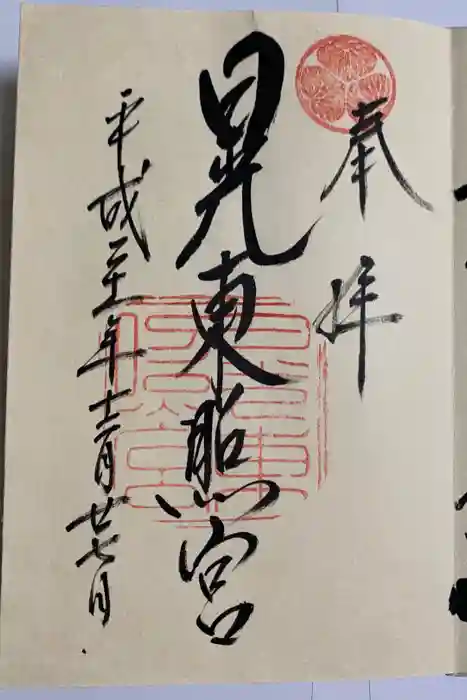 奉拝
晃東照宮
平成二十一年十二月廿七日